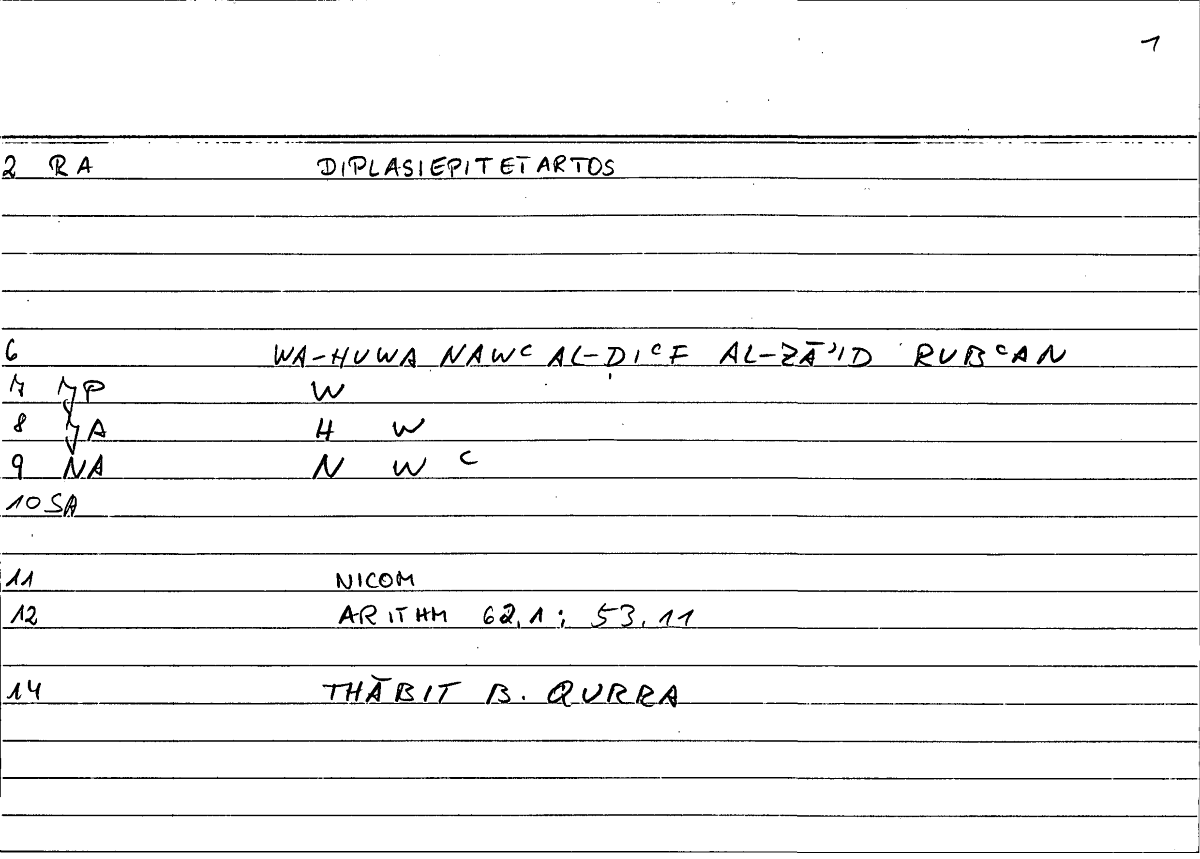 1
2 RA DIPLASIEPITETARTOS
6 WA-HUWA NAWC AL-ḌICF AL-ZĀʾID RUBCAN
7 JP W
8 JA H W
9 NA N W C
10 SA
11 NICOM
12 ARITHM 62,1; 53,11
14 THĀBIT B. QURRA